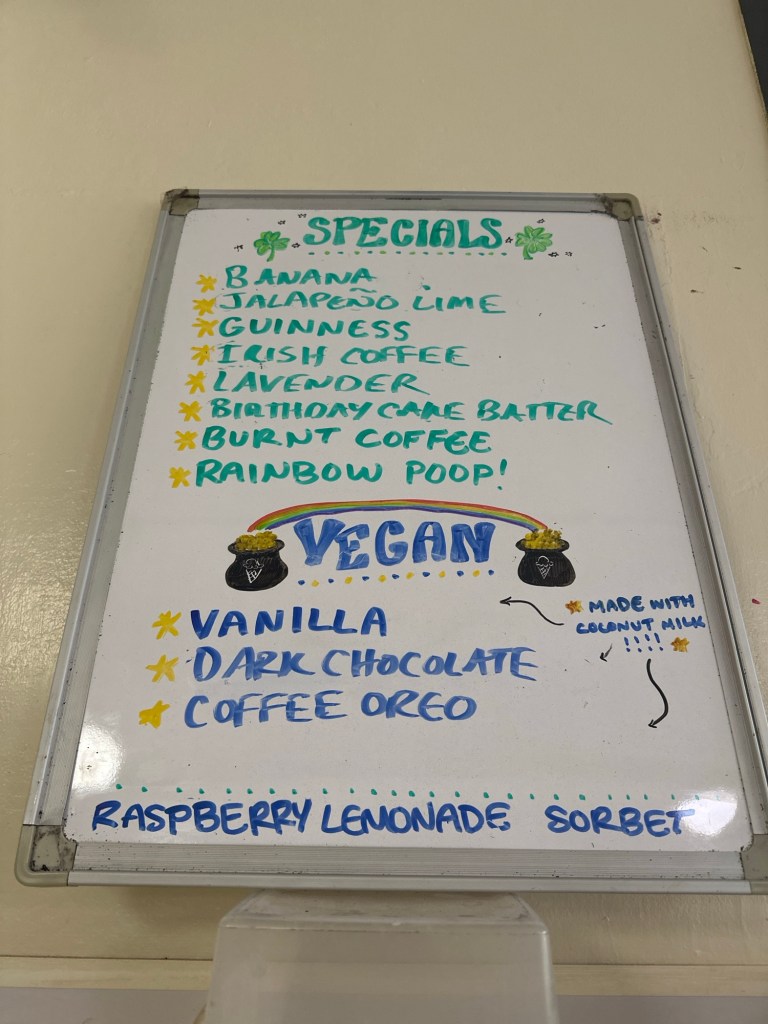 SPECIALS
BANANA
JALAPEÑO LIME
GUINNESS
IRISH COFFEE
LAVENDER
BIRTHDAY CAKE BATTER
BURNT COFFEE
RAINBOW POOP!
VEGAN
MADE WITH
COCONUT MILK
!!!!
VANILLA
DARK CHOCOLATE
COFFEE OREO
RASPBERRY LEMONADE SORBET